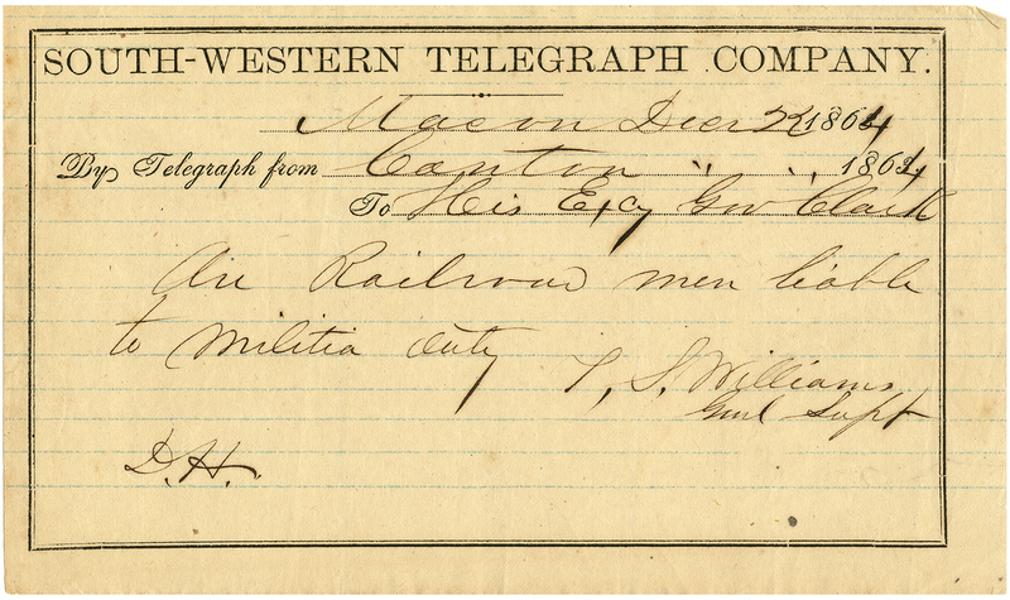 SOUTH-WESTERN TELEGRAPH COMPANY.
Macon Decr 22 1864
By Telegraph from Canton " " 1864
To His Excy Gov Clark
Are Railroad men liable
to militia duty T, S, Williams
Genl Supt
D.H.